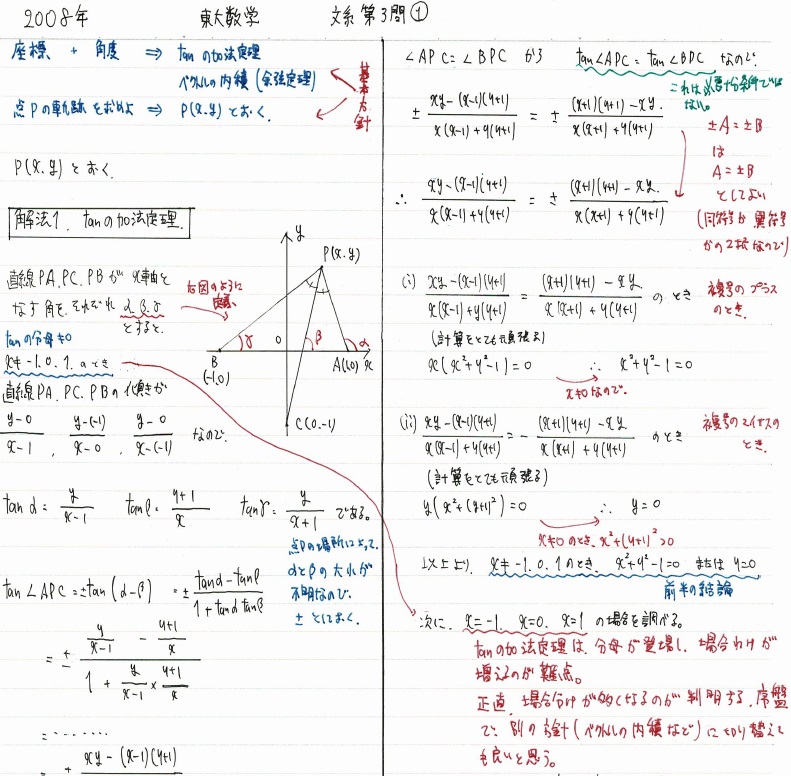 2008年 東大数学 文系第3問①
座標 + 角度 ⇒ tanの加法定理
ベクトルの内積(余弦定理)
点Pの軌跡を求めよ ⇒ P(x.y)とおく.
基本方針
P(x.y)とおく.
解法1. tanの加法定理.
直線PA.PC.PBがx軸と
なす角を、それぞれ α.β.γ
とすると.
右図のように
定義.
tanの分母≠0
x≠-1.0.1.のとき
直線PA.PC.PBの傾きが
y-0/x-1, y-(-1)/x-0, y-0/x-(-1) なので.
y
P(x.y)
γ
0
β
α
x
B
(-1.0)
A(1.0)
C(0.-1)
tanα = y/x-1 tanβ = y+1/x tanγ = y/x+1 である。
点Pの場所によって.
αとβの大小が
不明なので.
±としておく.
tan∠APC = ±tan(α-β) = ± tanα-tanβ/1+tanαtanβ
= ± (y/x-1 - y+1/x)/(1 + y/x-1 × y+1/x)
= ......
± xy-(x-1)(y+1)
∠APC = ∠BPC から tan∠APC = tan∠BPC なので.
これは必要十分条件では
ない。
± xy-(x-1)(y+1)/x(x-1)+y(y+1) = ± (x+1)(y+1)-xy/x(x+1)+y(y+1)
±A = ±B
は
A = ±B
としてよい
(同符号か異符号
かの2択なので)
∴ xy-(x-1)(y+1)/x(x-1)+y(y+1) = ± (x+1)(y+1)-xy/x(x+1)+y(y+1)
(i) xy-(x-1)(y+1)/x(x-1)+y(y+1) = (x+1)(y+1)-xy/x(x+1)+y(y+1) のとき
複号のプラス
のとき.
(計算をとても頑張る)
x(x²+y²-1)=0 ∴ x²+y²-1=0
x≠0なので.
(ii) xy-(x-1)(y+1)/x(x-1)+y(y+1) = - (x+1)(y+1)-xy/x(x+1)+y(y+1) のとき
複号のマイナスの
とき.
(計算をとても頑張る)
y(x²+(y+1)²)=0 ∴ y=0
x≠0のとき、x²+(y+1)²>0
以上より. x≠-1.0.1のとき. x²+y²-1=0 または y=0
前半の結論
次に. x=-1. x=0. x=1 の場合を調べる。
tanの加法定理は、分母が登場し、場合分けが
増えるのが難点。
正直、場合分けが多くなるのが判明する.序盤
で、別の方針(ベクトルの内積など)に切り替えて
も良いと思う。